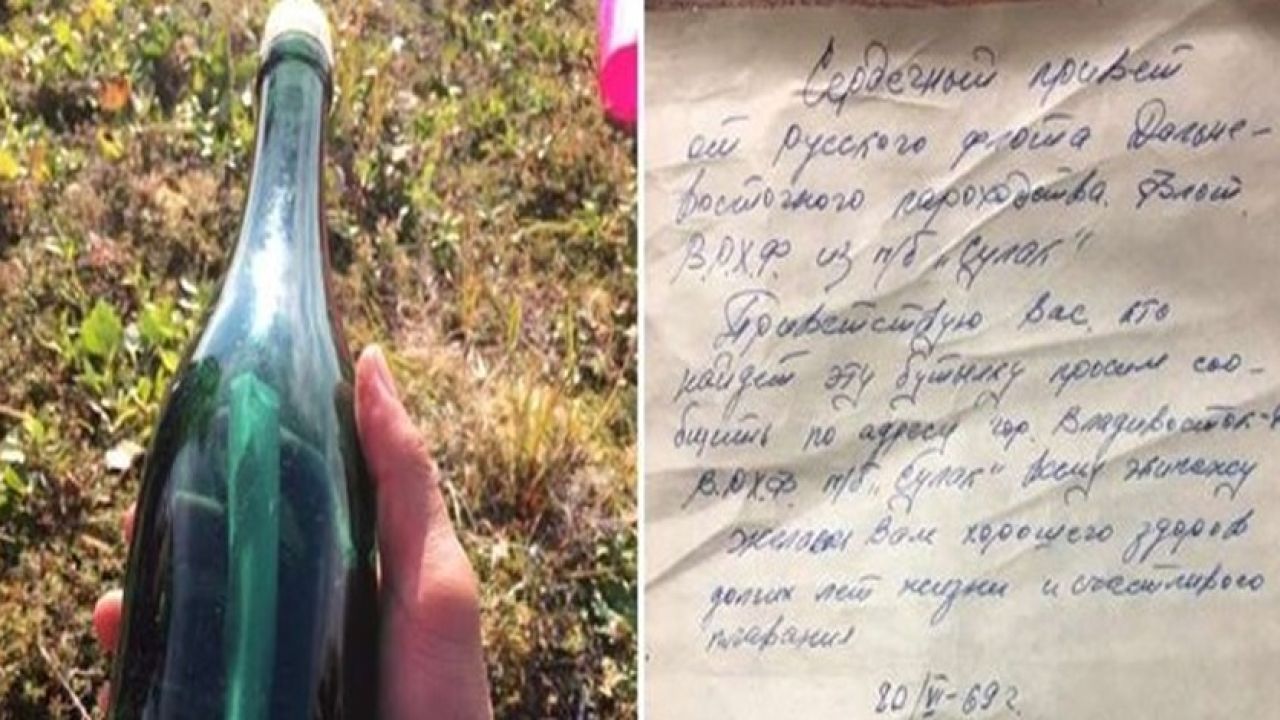 Сердечный привет
от Русского флота Дальне-
восточного пароходства. Флот
В.Р.Х.Ф. из п/б „Сулак"
Приветствую Вас, кто
найдет эту бутылку просим соо-
бщить по адресу гор. Владивосток-
В.Р.Х.Ф п/б „Сулак" всему экипажу
желаем Вам хорошего здоров
долгих лет жизни и счастливого
плавания
20/VI-69 г.